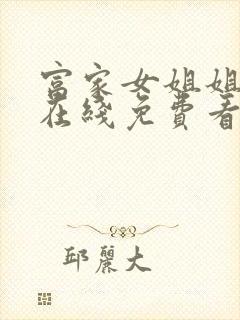 富家女姐姐
在綫免費看
邱麗大